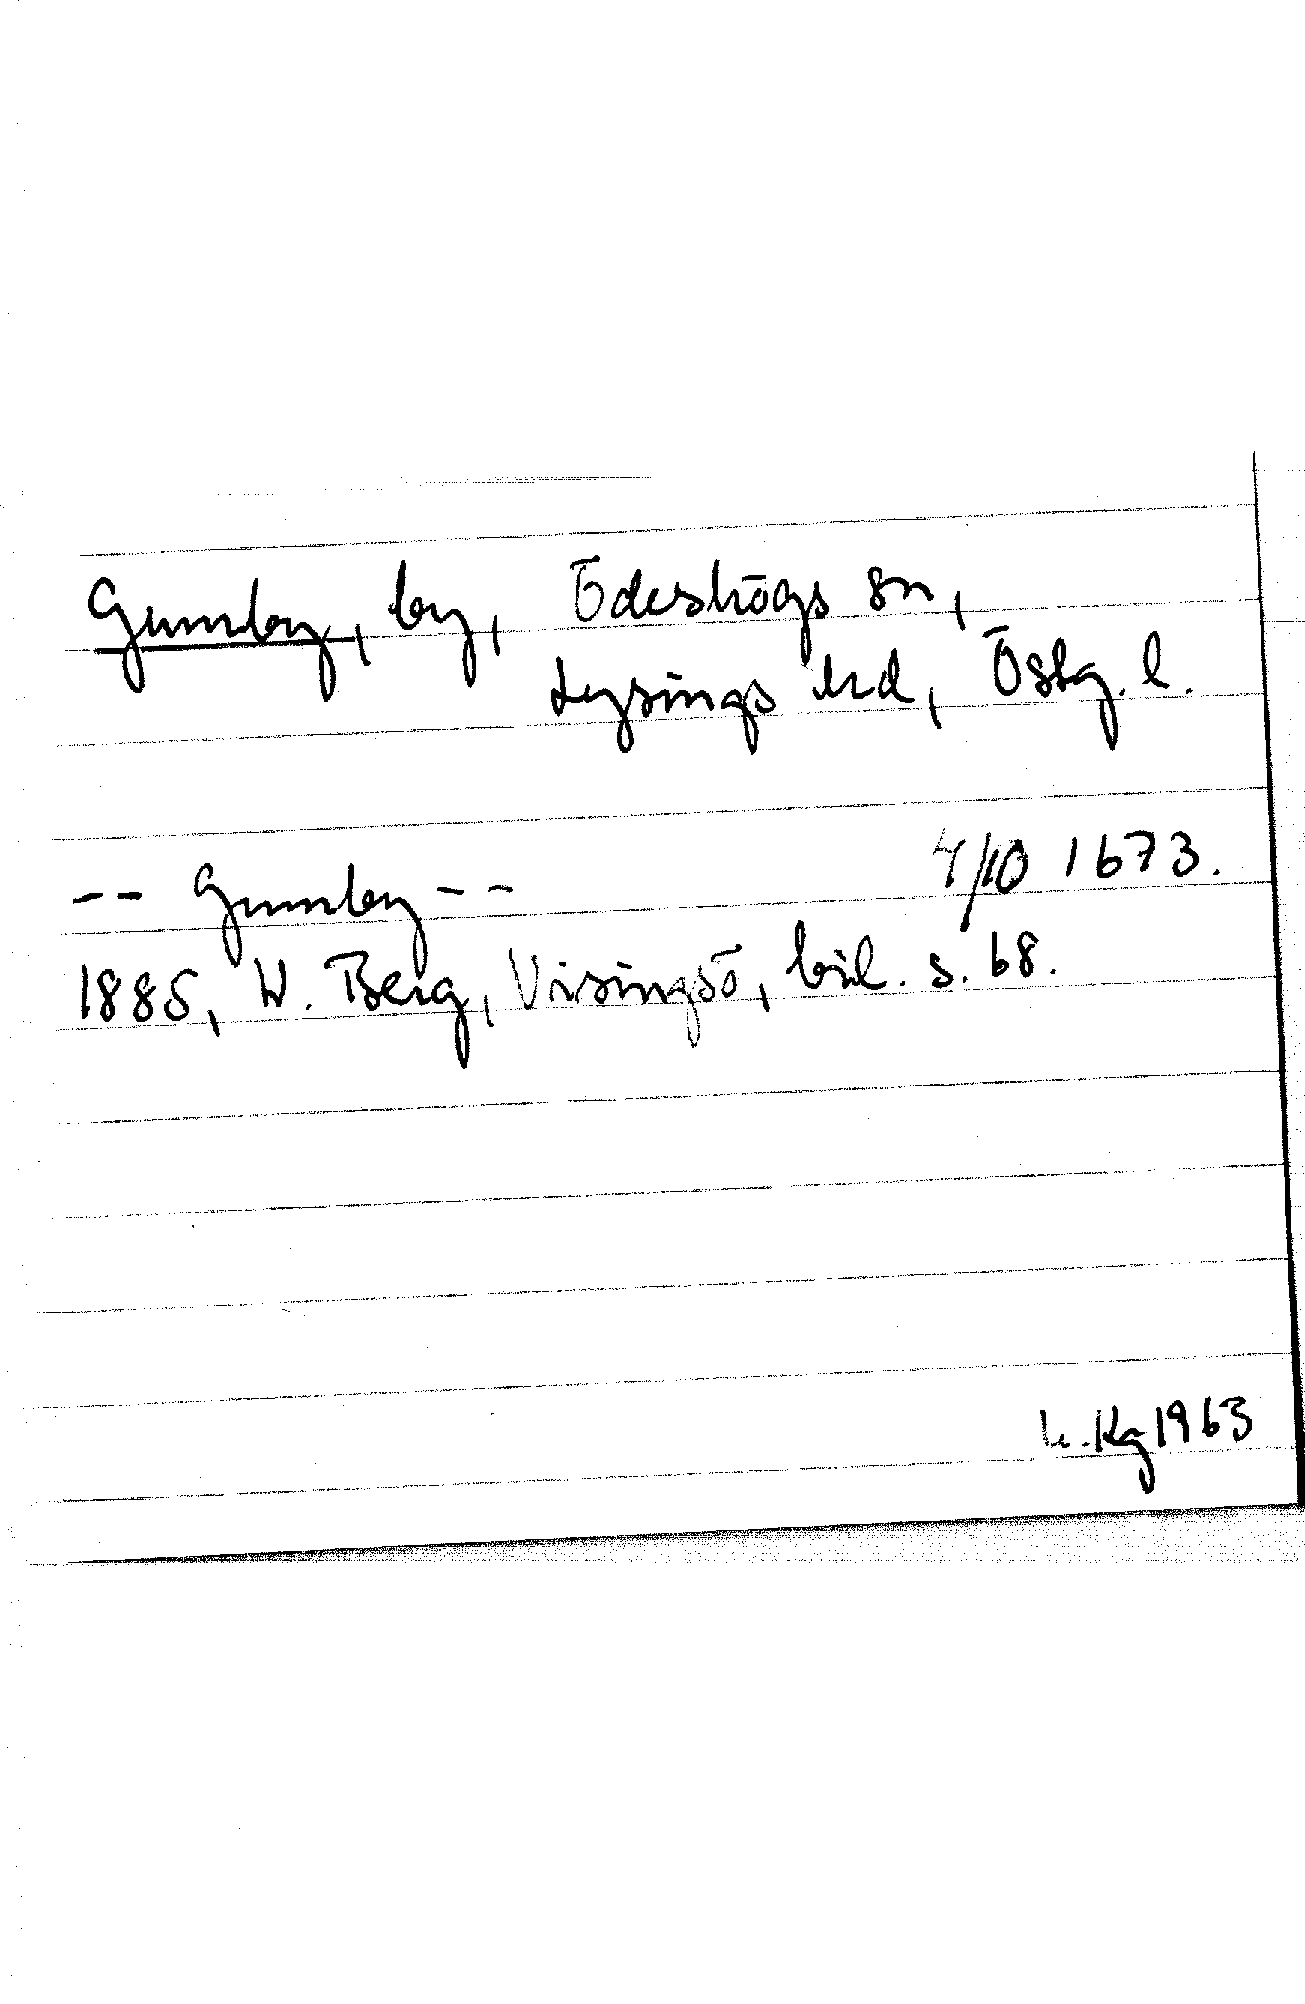 Gumby, by, Ödeshögs sn,
Lysings hd, Östg. l.
-- Gumby -- 4/10 1673.
1885, W. Berg, Visingsö, bil. s. 68.
Kg 1963